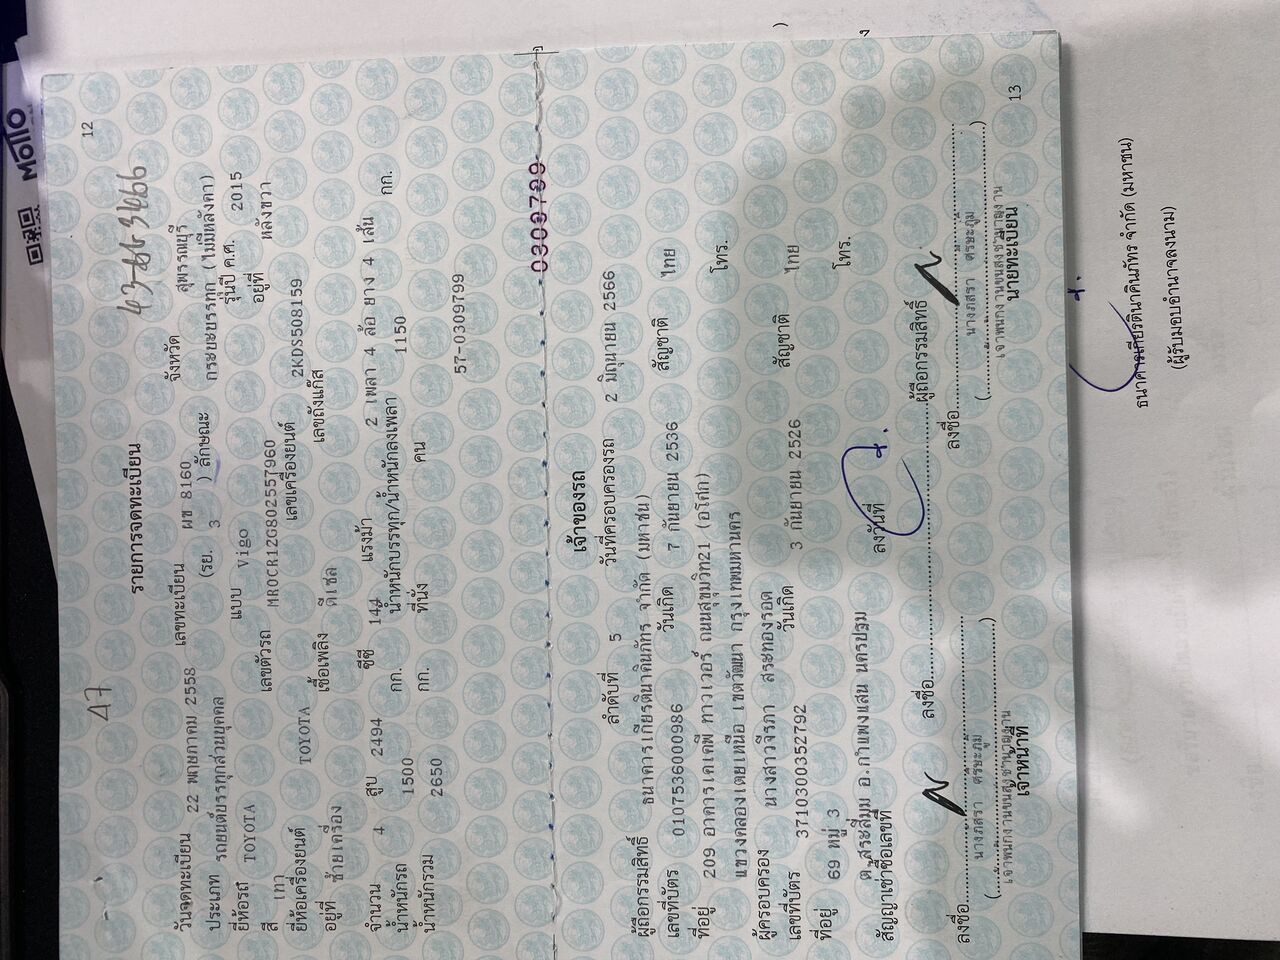 MOTTO
12
47
43-863466
รายการจดทะเบียน
วันจดทะเบียน 22 พฤษภาคม 2558 เลขทะเบียน ผช 8160 จังหวัด สุพรรณบุรี
ประเภท รถยนต์บรรทุกส่วนบุคคล (รย. 3 ) ลักษณะ กระบะบรรทุก (ไม่มีหลังคา)
ยี่ห้อรถ TOYOTA แบบ Vigo รุ่นปี ค.ศ. 2015
สี เทา เลขตัวรถ MR0CR12G802557960 อยู่ที่ หลังขวา
ยี่ห้อเครื่องยนต์ TOYOTA เลขเครื่องยนต์ 2KDS508159
อยู่ที่ ซ้ายเครื่อง เชื้อเพลิง ดีเซล เลขถังแก๊ส
จำนวน 4 สูบ 2494 ซีซี 144 แรงม้า 2 เพลา 4 ล้อ ยาง 4 เส้น
น้ำหนักรถ 1500 กก. น้ำหนักบรรทุก/น้ำหนักลงเพลา 1150 กก.
น้ำหนักรวม 2650 กก. ที่นั่ง คน
57-0309799
0309799
เจ้าของรถ
ลำดับที่ 5 วันที่ครอบครองรถ 2 มิถุนายน 2566
ผู้ถือกรรมสิทธิ์ ธนาคารเกียรตินาคินภัทร จำกัด (มหาชน)
เลขที่บัตร 0107536000986 วันเกิด 7 กันยายน 2536 สัญชาติ ไทย
ที่อยู่ 209 อาคารเคเคพี ทาวเวอร์ ถนนสุขุมวิท21 (อโศก) โทร.
แขวงคลองเตยเหนือ เขตวัฒนา กรุงเทพมหานคร
ผู้ครอบครอง นางสาวจีรภา สระทองรอด
เลขที่บัตร 3710300352792 วันเกิด 3 กันยายน 2526 สัญชาติ ไทย
ที่อยู่ 69 หมู่ 3 โทร.
ต.สระสี่มุม อ.กำแพงแสน นครปฐม
สัญญาเช่าซื้อเลขที่ ลงวันที่
ลงชื่อ ผู้ถือกรรมสิทธิ์
ลงชื่อ ลงชื่อ
(นางภสรา ศรษะภูมิ) (นางภสรา ศรษะภูมิ)
เจ้าพนักงานขนส่งชำนาญงาน เจ้าพนักงานขนส่งชำนาญงาน
เจ้าหน้าที่ นายทะเบียน
13
ธนาคารเกียรตินาคินภัทร จำกัด (มหาชน)
(ผู้รับมอบอำนาจลงนาม)